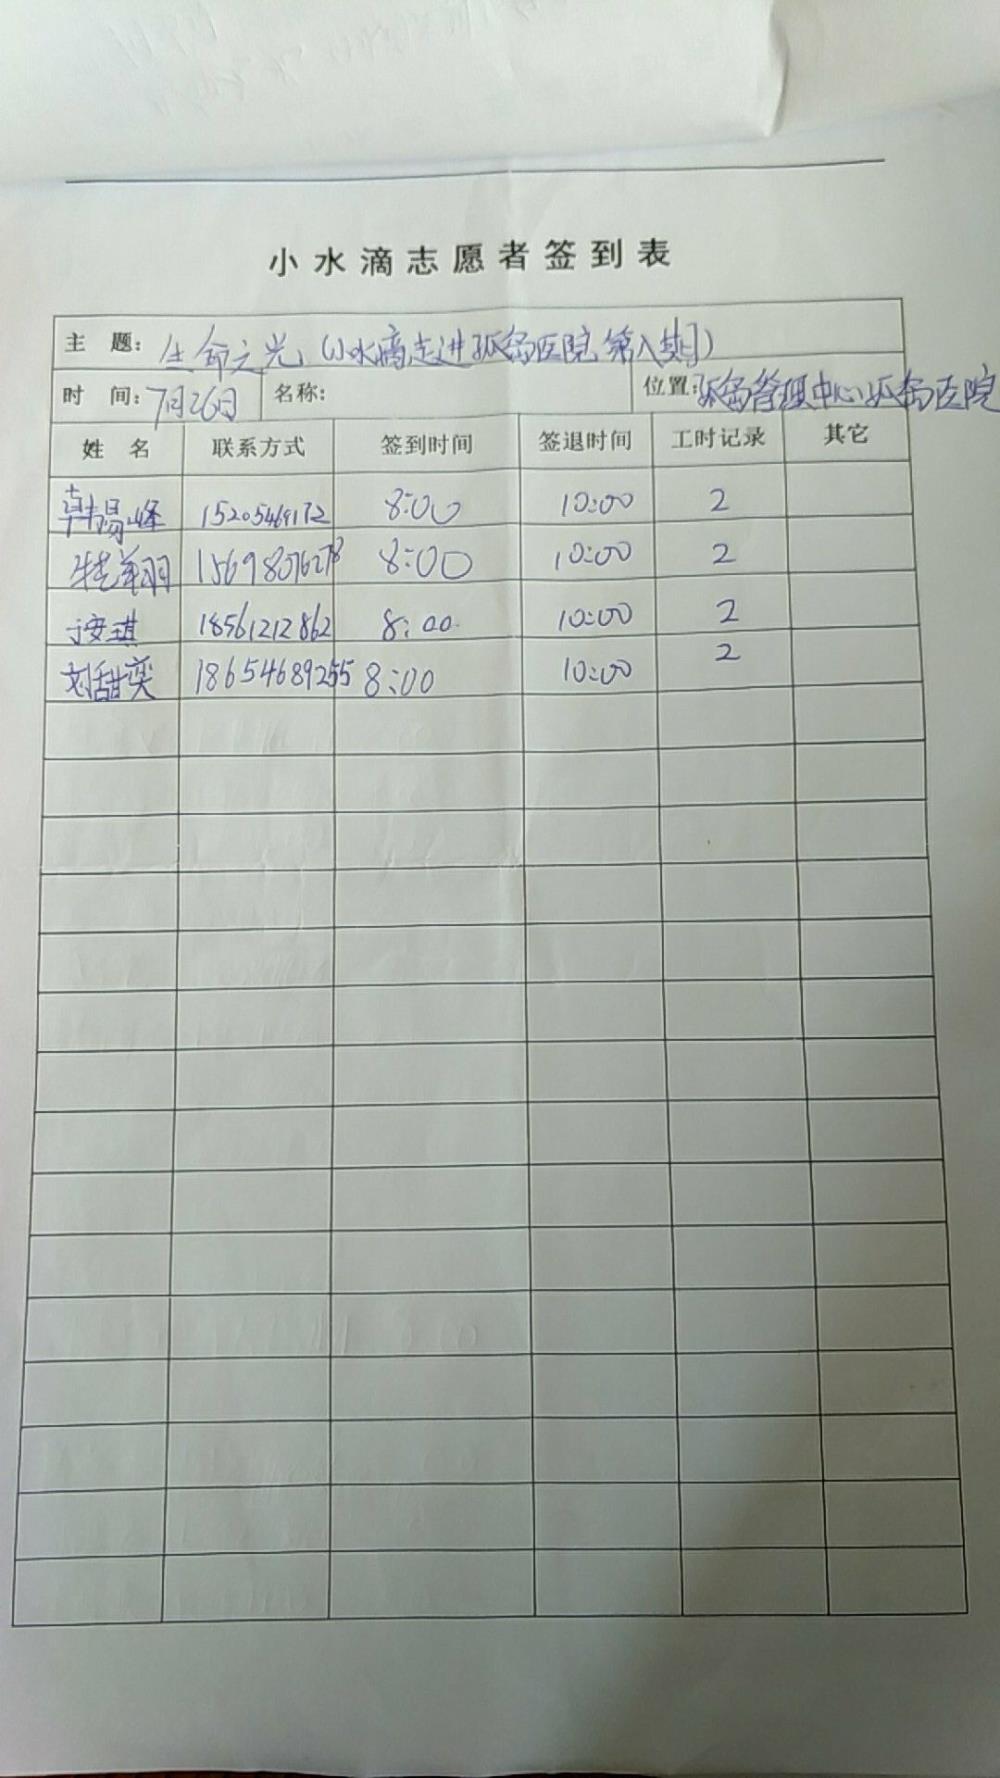 小水滴志愿者签到表
主 题: 生命之光(小水滴走进孤岛医院第八期)
时 间: 7月26日 名称: 位置: 孤岛管理中心孤岛医院
姓 名 联系方式 签到时间 签退时间 工时记录 其它
韩易峰 15205469172 8:00 10:00 2
翔羽 15698076278 8:00 10:00 2
于安琪 18561212862 8:00 10:00 2
刘甜奕 18654689255 8:00 10:00 2